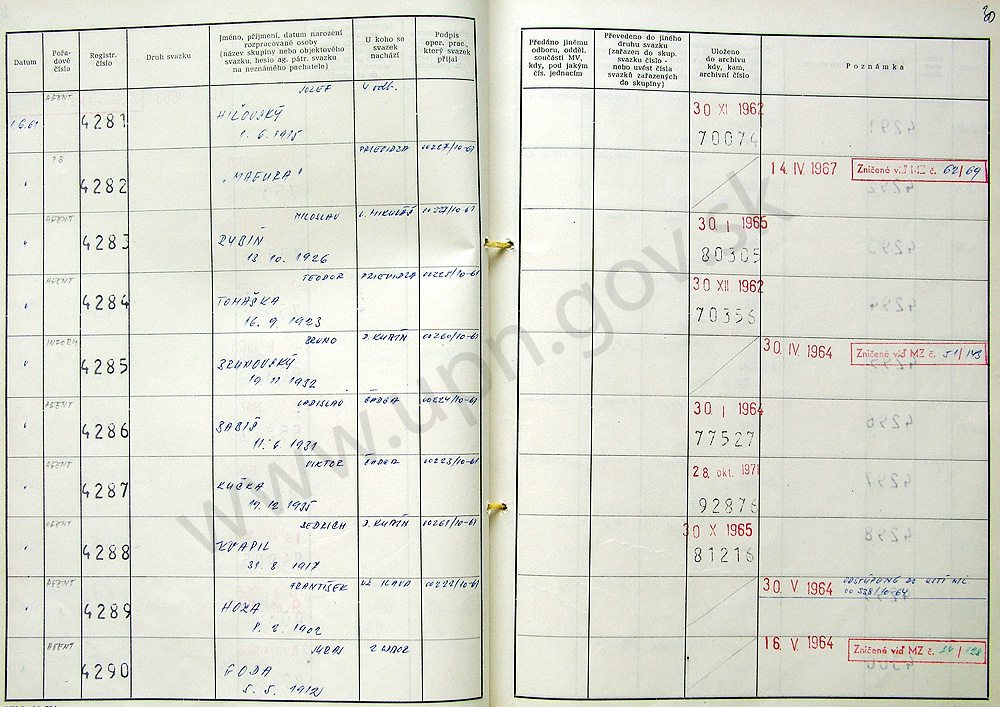 30
Datum
Pořadové číslo
Registr. číslo
Druh svazku
Jméno, příjmení, datum narození
rozpracované osoby
(název skupiny nebo objektového
svazku, heslo ag. pátr. svazku
na neznámého pachatele)
U koho se
svazek
nachází
Podpis
oper. prac.,
který svazek
přijal
Předáno jinému
odboru, odděl.
součásti MV,
kdy, pod jakým
čís. jednacím
Převedeno do jiného
druhu svazku
(zařazen do skup.
svazku číslo -
nebo uvést čísla
svazků zařazených
do skupiny)
Uloženo
do archivu
kdy, kam,
archivní číslo
Poznámka
AGENT JOZEF
4281 30 XI 1962
1. 6. 1915 70074
PRIEVIDZA 00227/10-61
4282 "MAGURA" 14. IV 1967 Zničené viď MZ č. 62/69
AGENT MILOSLAV L. MIKULÁŠ
4283 RYBÍŇ 30. I 1965
13 10. 1926 80305
AGENT TEODOR PRIEVIDZA
4284 TOMAŠKA 30 XII 1962
16. 9. 1923 70356
INFORM BRUNO D. KUBÍN 00260/10-61
4285 BRUNOVSKÝ 30. IV. 1964 Zničené viď MZ č.
19 11 1932
AGENT LADISLAV 00224/10-61
4286 BABIŠ 30. I 1964
11. 6 1931 77527
AGENT VIKTOR 00223/10-61
4287 KUČKA 28. okt. 1971
19. 12 1935 92876
AGENT BEDRICH D. KUBÍN 00261/10-61
4288 KVAPIL 30 X 1965
31. 8. 1917 81216
AGENT FRANTIŠEK ILAVA 00222/10-61
4289 HOZA 30. V 1964
8. 2. 1902
AGENT JURAJ
4290 GODA 16. V. 1964 Zničené viď MZ č.
5. 5. 1912
www.upn.gov.sk